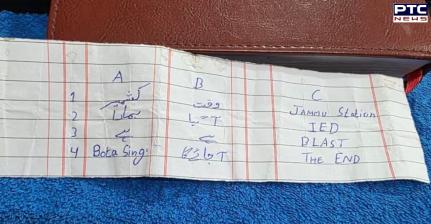 PTC
NEWS
A B C
1 کشمیر وقت JAMMU Station
2 IED
3 ہے ہے BLAST
4 Bota Sing. THE END